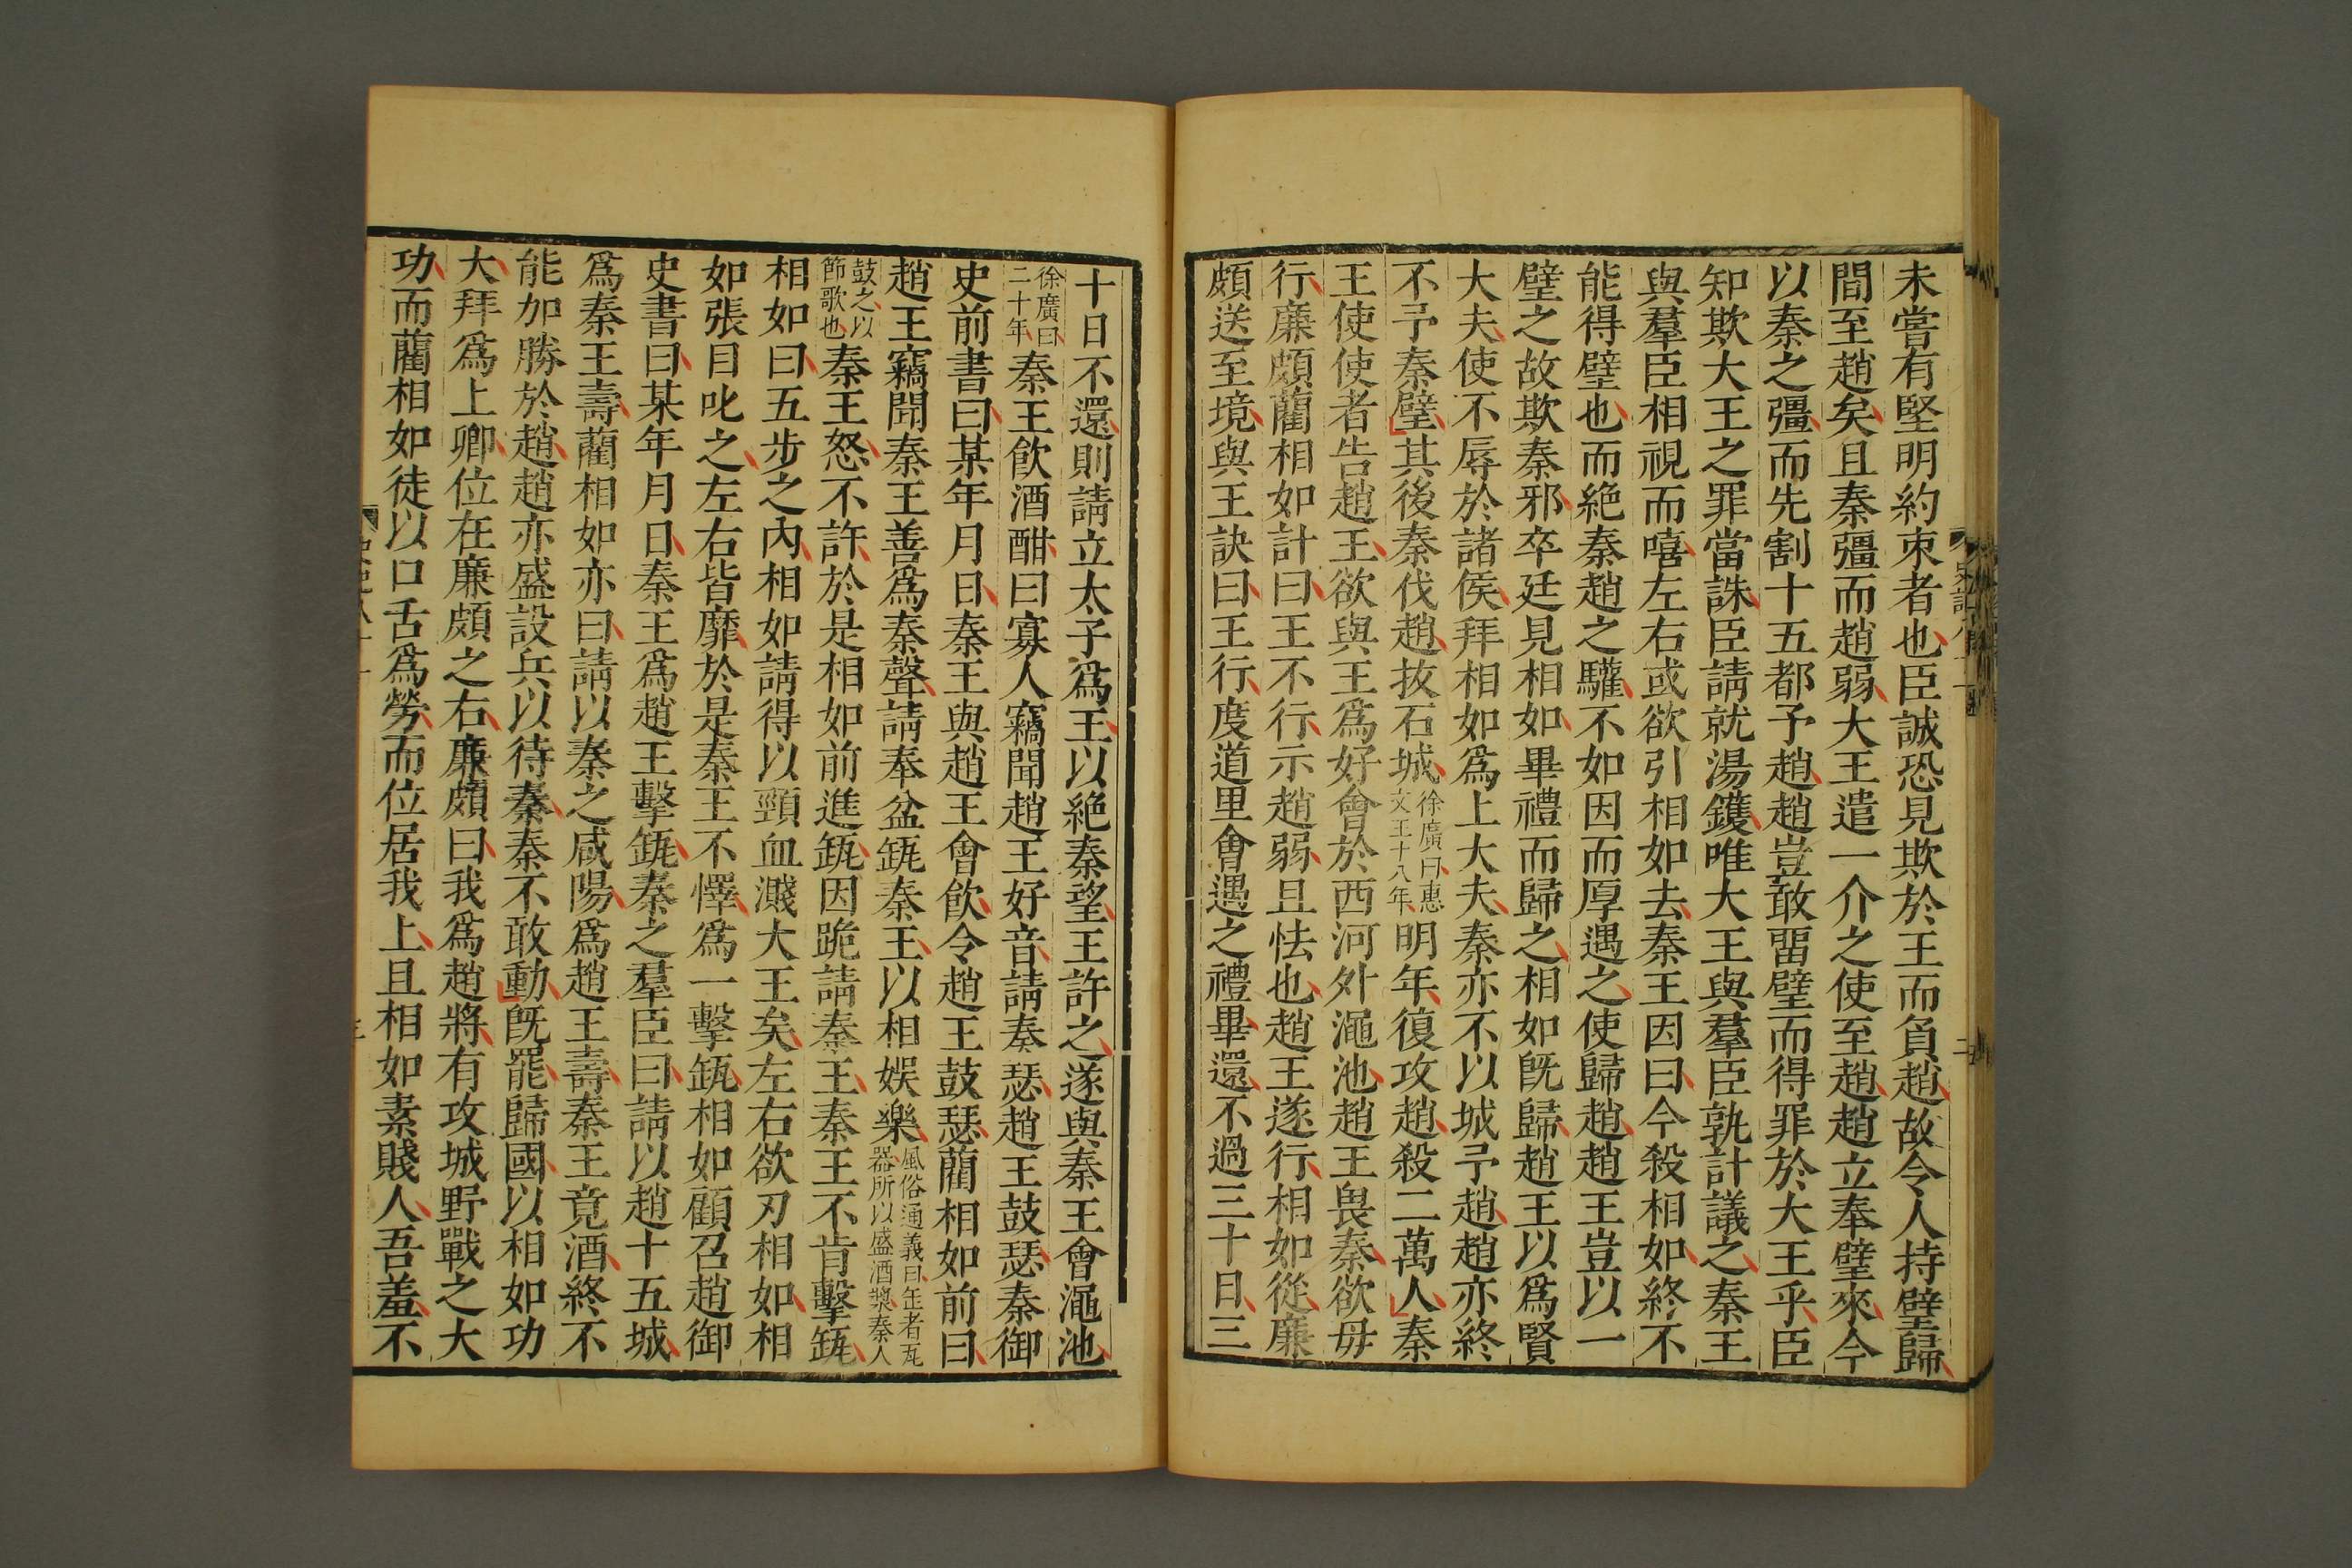 未嘗有堅明約束者也臣誠恐見欺於王而負趙故令人持璧歸
間至趙矣且秦彊而趙弱大王遣一介之使至趙趙立奉璧來今
以秦之彊而先割十五都予趙趙豈敢畱璧而得罪於大王乎臣
知欺大王之罪當誅臣請就湯鑊唯大王與羣臣孰計議之秦王
與羣臣相視而嘻左右或欲引相如去秦王因曰今殺相如終不
能得璧也而絶秦趙之驩不如因而厚遇之使歸趙趙王豈以一
璧之故欺秦邪卒廷見相如畢禮而歸之相如旣歸趙王以爲賢
大夫使不辱於諸侯拜相如爲上大夫秦亦不以城予趙趙亦終
不予秦璧其後秦伐趙拔石城徐廣曰惠文王十八年明年復攻趙殺二萬人秦
王使使者告趙王欲與王爲好會於西河外澠池趙王畏秦欲毋
行廉頗藺相如計曰王不行示趙弱且怯也趙王遂行相如從廉
頗送至境與王訣曰王行度道里會遇之禮畢還不過三十日三
十日不還則請立太子爲王以絶秦望王許之遂與秦王會澠池
徐廣曰二十年秦王飮酒酣曰寡人竊聞趙王好音請奏瑟趙王鼓瑟秦御
史前書曰某年月日秦王與趙王會飮令趙王鼓瑟藺相如前曰
趙王竊聞秦王善爲秦聲請奉盆缻秦王以相娛樂風俗通義曰缶者瓦器所以盛酒漿秦人
鼓之以節歌也秦王怒不許於是相如前進缻因跪請秦王秦王不肯擊缻
相如曰五步之內相如請得以頸血濺大王矣左右欲刃相如相
如張目叱之左右皆靡於是秦王不懌爲一擊缻相如顧召趙御
史書曰某年月日秦王爲趙王擊缻秦之羣臣曰請以趙十五城
爲秦王壽藺相如亦曰請以秦之咸陽爲趙王壽秦王竟酒終不
能加勝於趙趙亦盛設兵以待秦秦不敢動旣罷歸國以相如功
大拜爲上卿位在廉頗之右廉頗曰我爲趙將有攻城野戰之大
功而藺相如徒以口舌爲勞而位居我上且相如素賤人吾羞不